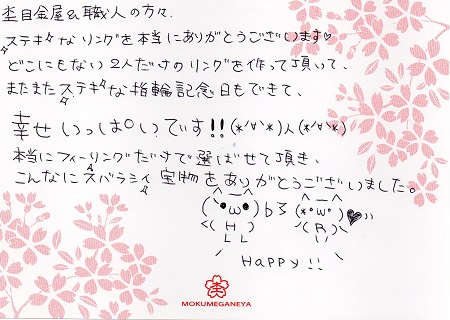 杢目金屋&職人の方々.
ステキなリングを本当にありがとうございます♡
どこにもない2人だけのリングを作って頂いて、
またまたステキな指輪記念日もできて、
幸せいっぱいです!!(*^∀^*)人(*^∀^*)
本当にフィーリングだけで選ばせて頂き、
こんなにスバラシイ宝物をありがとうございました。
H
R
HAPPY!!
MOKUMEGANEYA